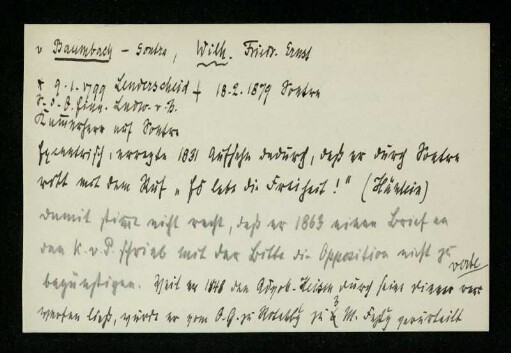 v Baumbach - Sontra, Wilh. Friedr. Ernst
* 9.1.1799 Lenderscheid † 18.2.1879 Sontra
S. d. Ludw. v. B.
Kammerherr auf Sontra
Exzentrisch, erregte 1831 Aufsehn dadurch, daß er durch Sontra
ritt mit dem Ruf „Es lebe die Freiheit!" (
damit stimmt nicht recht, daß er 1863 einen Brief an
den K. v. P. schrieb mit der Bitte die Opposition nicht zu
begünstigen. Weil er 1848 den durch seine Diener
werfen ließ, wurde er vom O.G. zu Rotenbg zu 3 M. verurteilt